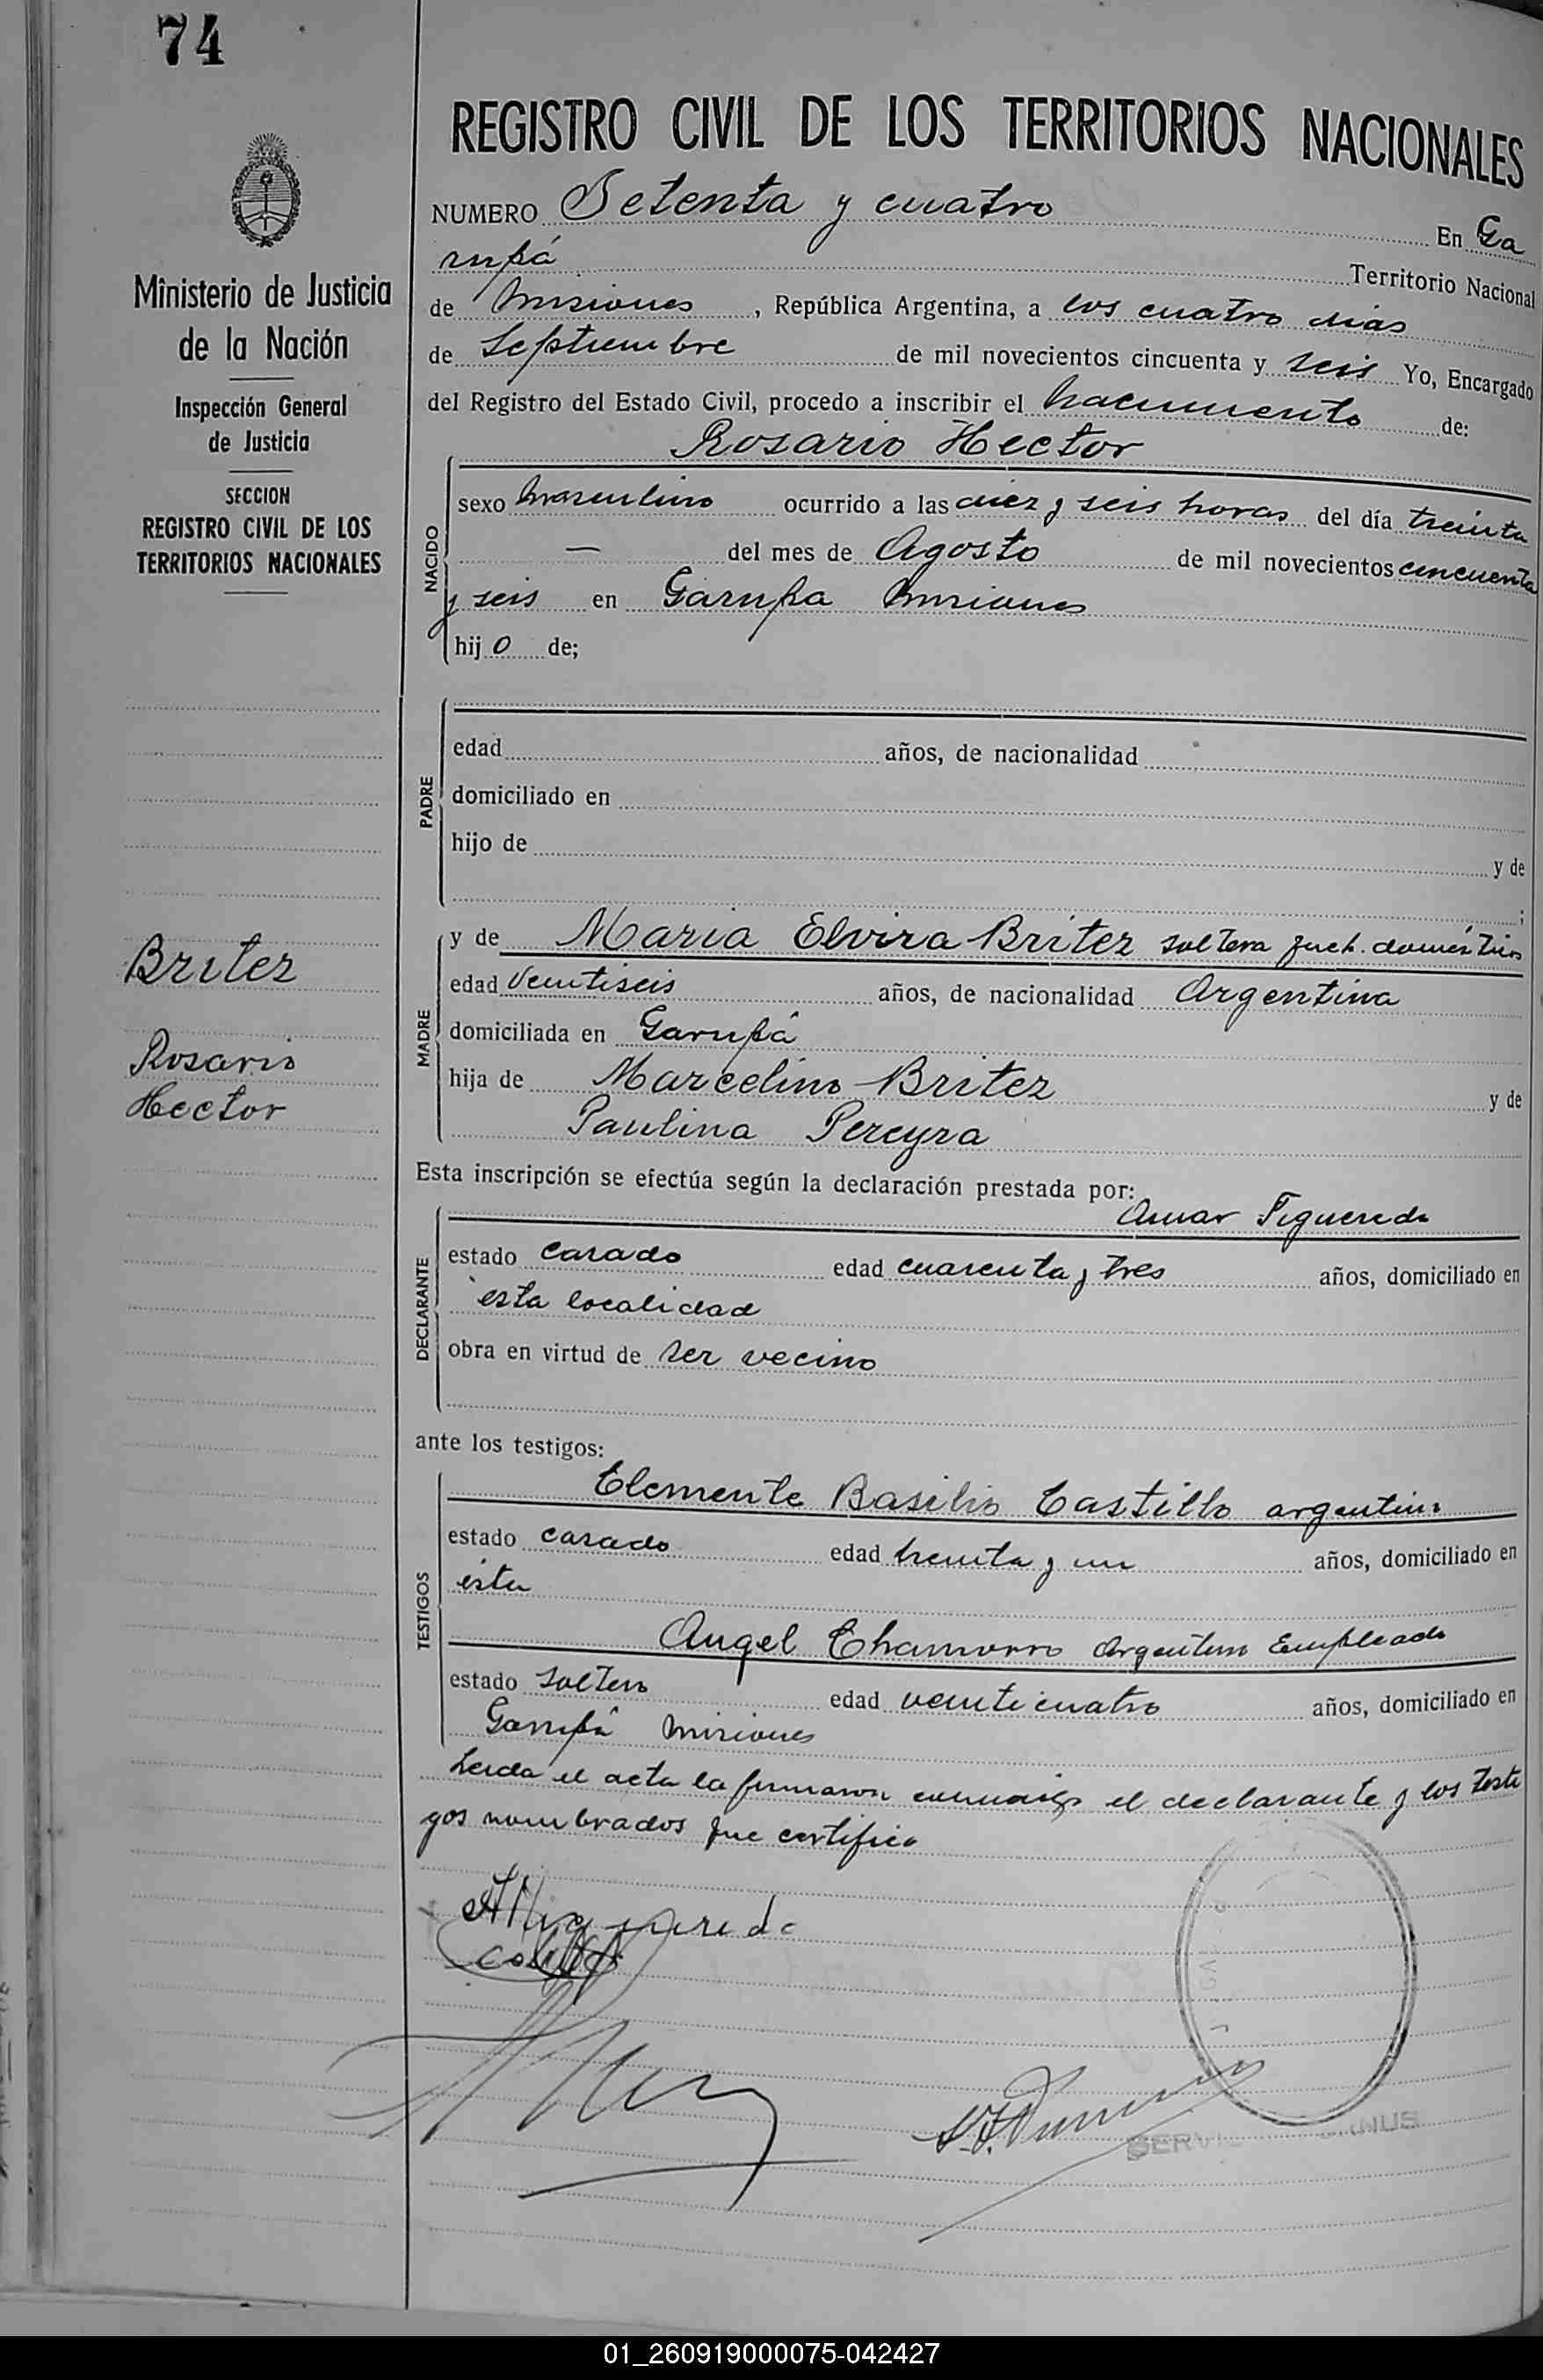 74
REGISTRO CIVIL DE LOS TERRITORIOS NACIONALES
NUMERO Setenta y cuatro En Ga
rupá Territorio Nacional
de Misiones, República Argentina, a los cuatro dias
de Septiembre de mil novecientos cincuenta y seis Yo, Encargado
del Registro del Estado Civil, procedo a inscribir el nacimiento de:
Rosario Hector
NACIDO
sexo masculino ocurrido a las diez y seis horas del día treinta
— del mes de Agosto de mil novecientos cincuenta
y seis en Garupa Misiones
hijo de;
PADRE
edad años, de nacionalidad
domiciliado en
hijo de y de
;
MADRE
y de Maria Elvira Britez soltera queh. domésticos
edad veintiseis años, de nacionalidad Argentina
domiciliada en Garupá
hija de Marcelino Britez y de
Paulina Pereyra
Esta inscripción se efectúa según la declaración prestada por:
Figueredo
DECLARANTE
estado casado edad cuarenta y tres años, domiciliado en
esta localidad
obra en virtud de ser vecino
ante los testigos:
TESTIGOS
Clemente Basilio Castillo argentino
estado casado edad treinta y un años, domiciliado en
ésta
Angel Chamorro Argentino Empleado
estado soltero edad veinticuatro años, domiciliado en
Garupá Misiones
Leida el acta la firmaron conmigo el declarante y los testi
gos nombrados que certifico
Ministerio de Justicia
de la Nación
Inspección General
de Justicia
SECCION
REGISTRO CIVIL DE LOS
TERRITORIOS NACIONALES
Britez
Rosario
Hector
01_260919000075-042427